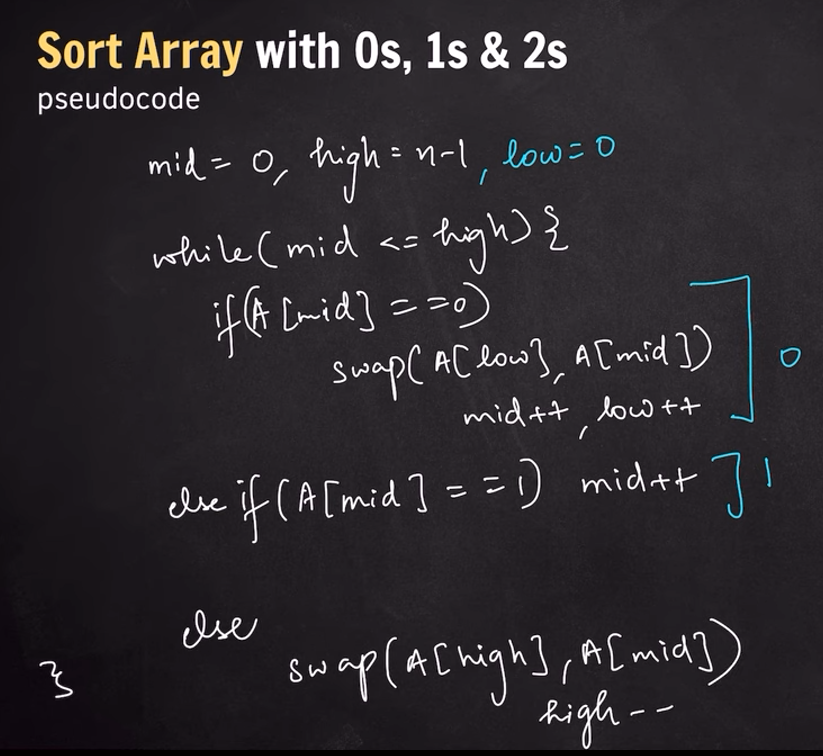 Sort Array with 0s, 1s & 2s
pseudocode
mid = 0, high = n-1, low = 0
while(mid <= high){
if(A[mid] == 0)
swap(A[low], A[mid])
mid++, low++
0
else if(A[mid] == 1) mid++ 1
else
swap(A[high], A[mid])
high--
}